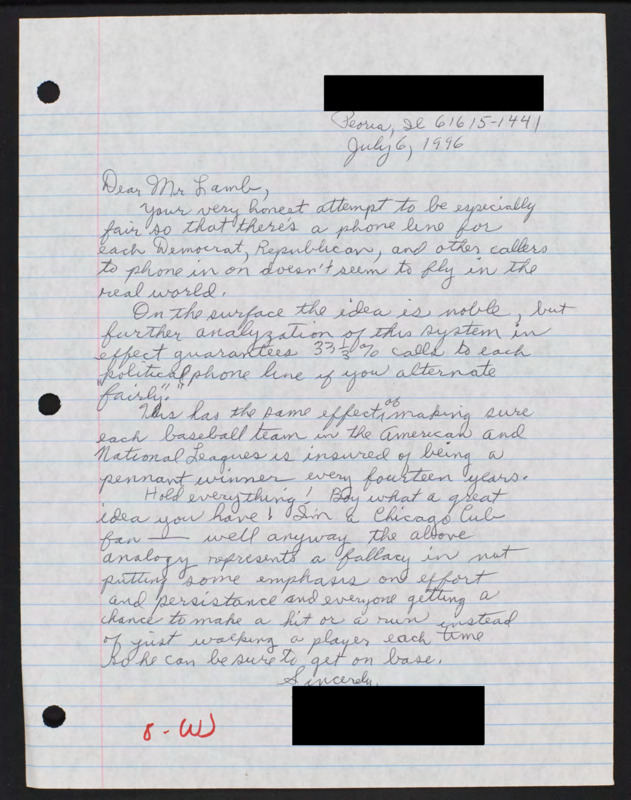 Peoria, Il 61615-1441
July 6, 1996
Dear Mr Lamb,
Your very honest attempt to be especially
fair so that there's a phone line for
each Democrat, Republican, and other callers
to phone in on doesn't seem to fly in the
real world.
On the surface the idea is noble, but
further analyzation of this system in
effect guarantees 33 1/3 % calls to each
"political phone line if you alternate
fairly".
This has the same effect of making sure
each baseball team in the American and
National Leagues is insured of being a
pennant winner every fourteen years.
Hold everything! Boy what a great
idea you have! I'm a Chicago Cub
fan — well anyway the above
analogy represents a fallacy in not
putting some emphasis on effort
and persistance and everyone getting a
chance to make a hit or a run instead
of just walking a player each time
so he can be sure to get on base.
Sincerely,
8-W